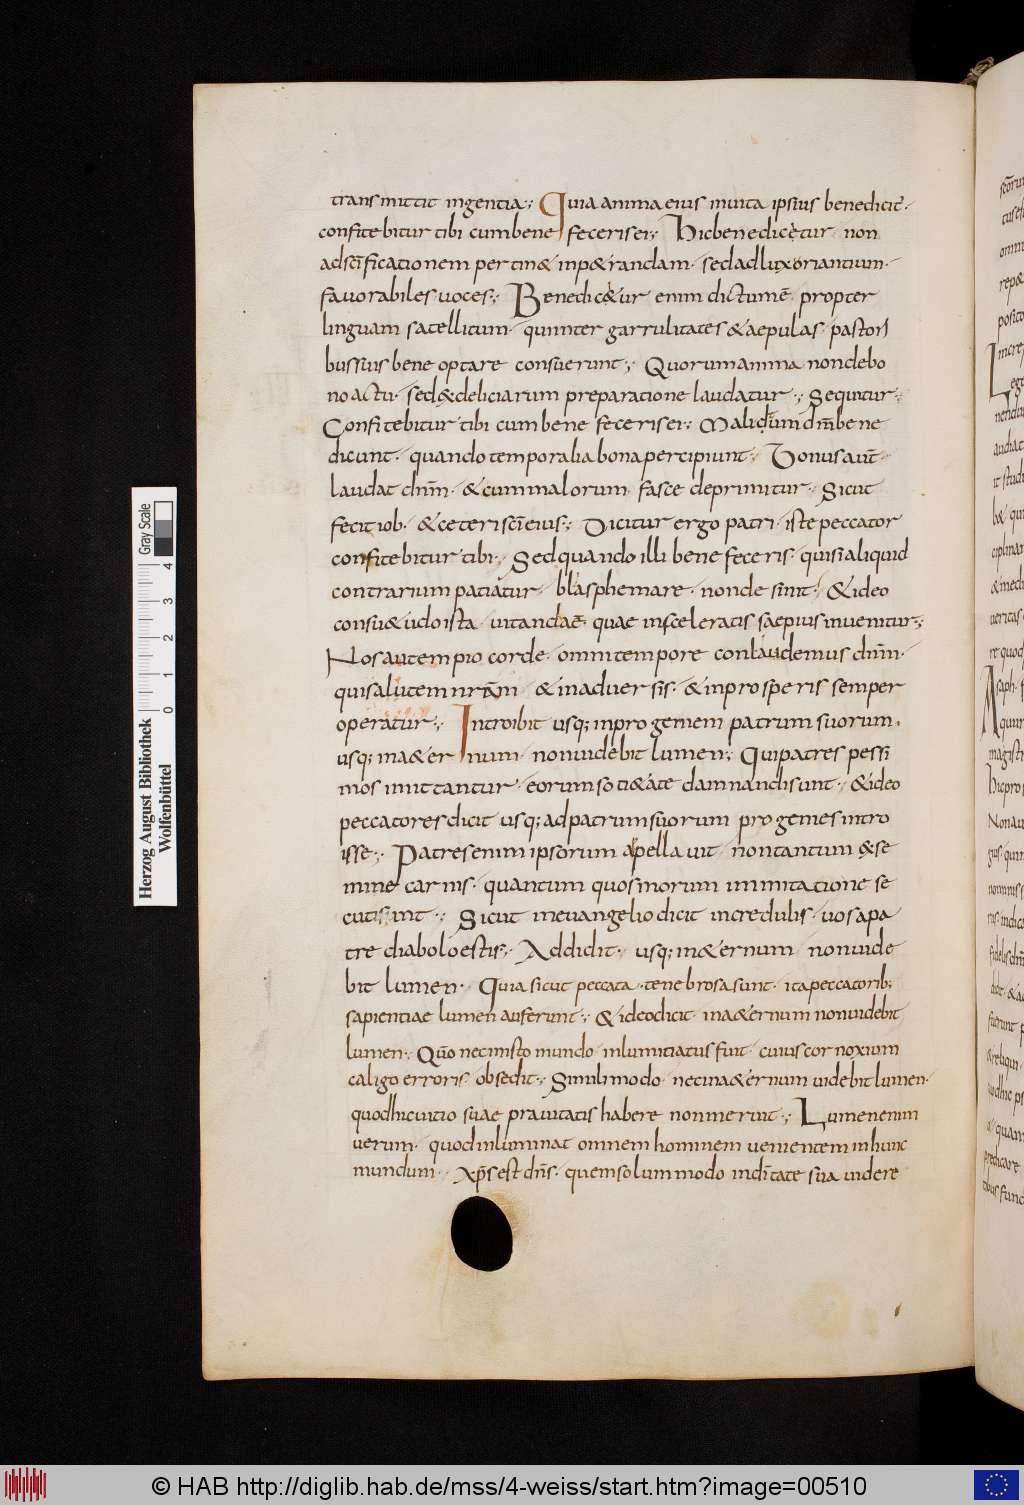 transmittit ingentia; Quia anima eius inuita ipsius benedicit̄·
confitebitur tibi cum bene feceris ei; Hic benedicetur non
ad sc̄ificationem pertin& inp&randam· sed ad luxoriantium·
fauorabiles uoces; Benedic&ur enim dictum ē propter
linguam satellitum· qui inter garrulitates & aepulas· pastori
bus suis bene optare consuerunt; Quorum anima non de bo
no actu· sed & deliciarum preparatione laudatur; Sequitur;
Confitebitur tibi cum bene feceris ei; Mali dum dn̄m bene
dicunt· quando temporalia bona percipiunt; Bonus aūt
laudat dn̄m· & cum malorum fasce deprimitur; Sicut
fecit iob· & ceteri sc̄i eius; Dicitur ergo patri· iste peccator
confitebitur tibi· Sed quando illi bene feceris· qui si aliquid
contrarium patiatur· blasphemare· non desinit· & ideo
consu&udo ista uitanda ē· quae in sceleratis saepius inuenitur;
Nos autem pio corde· omni tempore conlaudemus dn̄m·
qui salutem nr̄am & in aduersis· & in prosperis semper
operatur; Introibit usq; in progeniem patrum suorum·
usq; in a&ernum non uidebit lumen; Qui patres pessi
mos imittantur· eorum soci&ate damnandi sunt· & ideo
peccatores dicit usq; ad patrum suorum progenies intro
isse; Patres enim ipsorum apellauit non tantum & se
mine carnis· quantum quos morum immitatione se
cuti sunt; Sicut in euangelio dicit incredulis· uos a pa
tre diabolo estis; Addidit· usq; in a&ernum non uide
bit lumen· Quia sicut peccata· tenebrosa sunt· ita peccatorib;
sapientiae lumen auferunt; & ideo dicit· in a&ernum non uidebit
lumen; Quo nec in isto mundo inlumitiatus fuit cuius cor noxium
caligo erroris obsedit; Simili modo· nec in a&ernum uidebit lumen·
quod hic uitio suae prauitatis habere non meruit; Lumen enim
uerum· quod inluminat omnem hominem uenientem in hunc
mundum· xp̄s est dn̄s· quem solummodo in diuitate sua uidere
Gray Scale
0 1 2 3 4
Herzog August Bibliothek
Wolfenbüttel
© HAB http://diglib.hab.de/mss/4-weiss/start.htm?image=00510